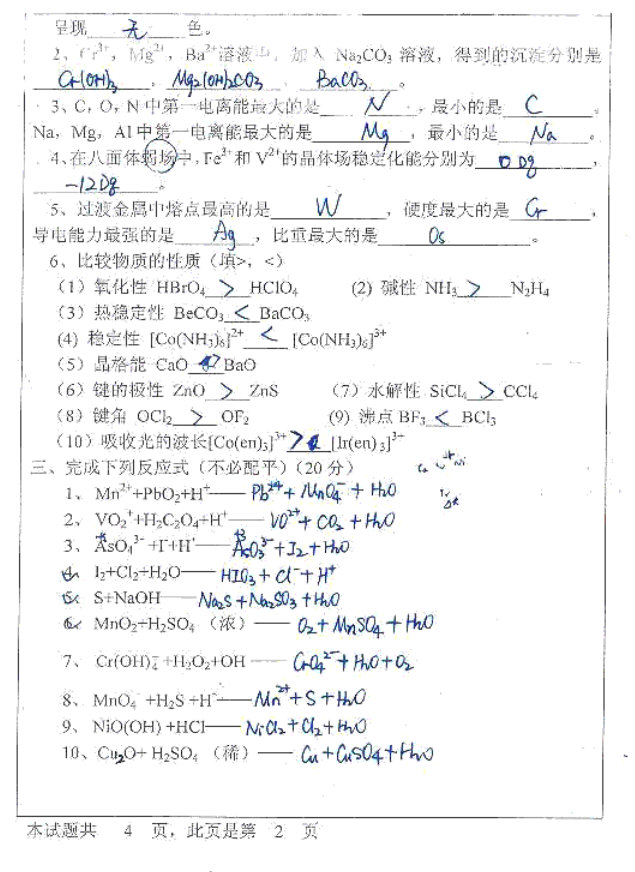 呈现 无 色。
2、Cr³⁺, Mg²⁺, Ba²⁺溶液中, 加入 Na₂CO₃ 溶液, 得到的沉淀分别是
Cr(OH)₃ , Mg₂(OH)₂CO₃ , BaCO₃ 。
3、C, O, N 中第一电离能最大的是 N , 最小的是 C 。
Na, Mg, Al 中第一电离能最大的是 Mg , 最小的是 Na 。
4、在八面体弱场中, Fe³⁺和 V²⁺的晶体场稳定化能分别为 0 Dq ,
-12Dq 。
5、过渡金属中熔点最高的是 W , 硬度最大的是 Cr ,
导电能力最强的是 Ag , 比重最大的是 Os 。
6、比较物质的性质(填>, <)
(1) 氧化性 HBrO₄ > HClO₄ (2) 碱性 NH₃ > N₂H₄
(3) 热稳定性 BeCO₃ < BaCO₃
(4) 稳定性 [Co(NH₃)₆]²⁺ < [Co(NH₃)₆]³⁺
(5) 晶格能 CaO > BaO
(6) 键的极性 ZnO > ZnS (7) 水解性 SiCl₄ > CCl₄
(8) 键角 OCl₂ > OF₂ (9) 沸点 BF₃ < BCl₃
(10) 吸收光的波长[Co(en)₃]³⁺ > [Ir(en)₃]³⁺
三、完成下列反应式(不必配平)(20 分)
1、Mn²⁺+PbO₂+H⁺—— Pb²⁺ + MnO₄⁻ + H₂O
2、VO₂⁺+H₂C₂O₄+H⁺—— VO²⁺ + CO₂ + H₂O
3、AsO₄³⁻+I⁻+H⁺—— AsO₃³⁻ + I₂ + H₂O
4、I₂+Cl₂+H₂O—— HIO₃ + Cl⁻ + H⁺
5、S+NaOH—— Na₂S + Na₂SO₃ + H₂O
6、MnO₂+H₂SO₄ (浓) —— O₂ + MnSO₄ + H₂O
7、Cr(OH)₄⁻+H₂O₂+OH⁻ —— CrO₄²⁻ + H₂O + O₂
8、MnO₄⁻+H₂S+H⁺—— Mn²⁺ + S + H₂O
9、NiO(OH)+HCl—— NiCl₂ + Cl₂ + H₂O
10、Cu₂O+ H₂SO₄ (稀) —— Cu + CuSO₄ + H₂O
本试题共 4 页, 此页是第 2 页